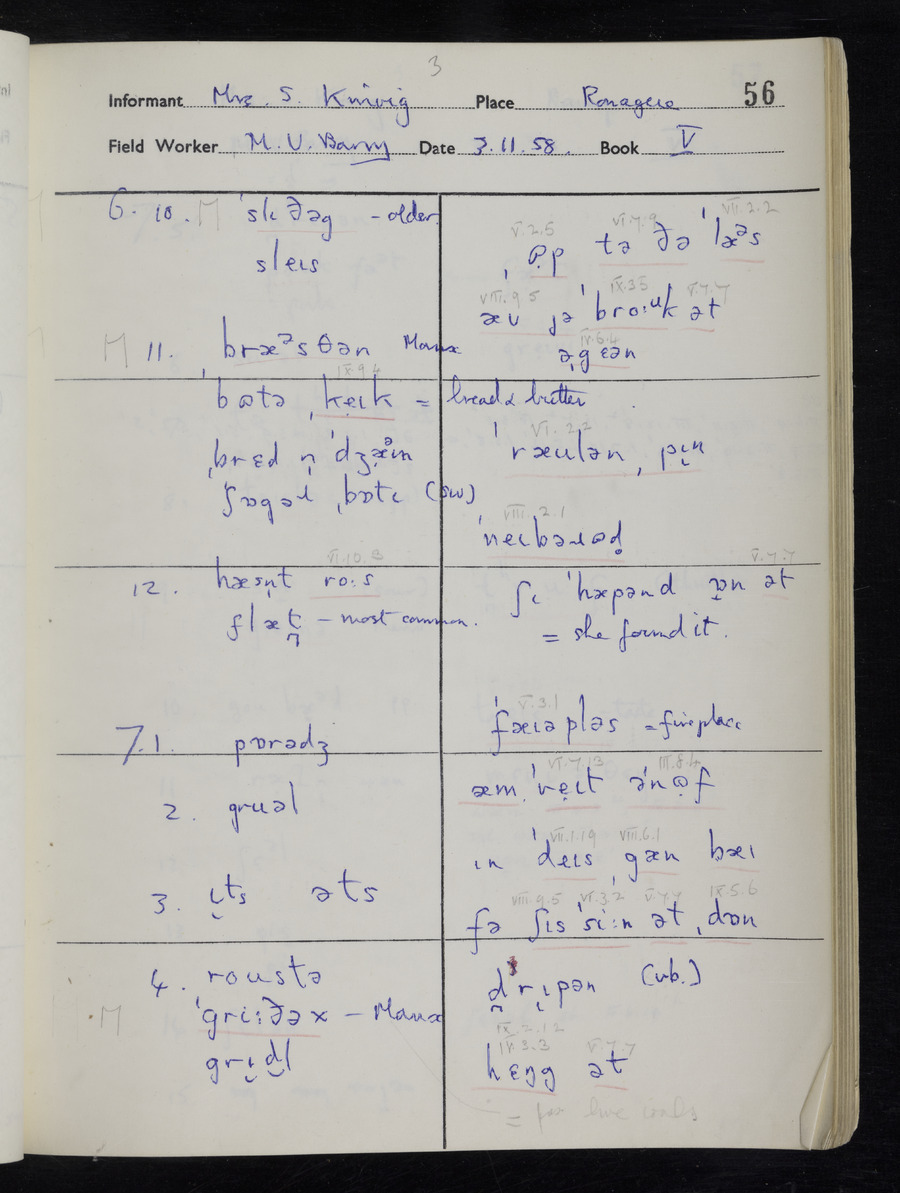 3
Informant Mrs. S. Kinvig Place Ronague 56
Field Worker M. V. Barry Date 3.11.58. Book V
6. 10. M ˈslɩ ðəg – older
sleɩs
M 11. ˌbræᵊsθən Manx
IX.9.4
bɷtə ˌkẹɩk = bread & butter
ˌbrɛd n̩ ˈdʒæ̣̊ɩn
ˈʃɒgəɹ ˌbɒtɩ (sw)
VI.10.3
12. hæsn̩t ro:s
flæt̪ – most common.
7.1. pɒrədʒ
2. gruəl
3. ɩ̬ts əts
4. roustə
M ˈgri:ðəx – Manx
grɩ̬d̬l
V.2.5 VI.7.9 VII.2.2
ˌɷp tə ðə ˈlæᵊs
VIII.9.5 IX.3.5 V.7.7
æv jə ˈbro:ᵘk ət
ə̣gɛən
VI.2.2
ˈræulən ˌpɩ̬n
VIII.2.1
ˈneɩbəɹɷd̥
V.7.7
ʃɩ ˈhæpənd ɒ̣n ət
= she found it.
V.3.1
ˈfæɩəpləs = fireplace
VI.7.13 III.8.4
æm ˈvẹɩt əˈnɷ̣f
VII.1.19 VIII.6.1
ɩn ˈdeɩs ˌgæn bæɩ
VIII.9.5 VI.3.2 V.7.7 IX.5.6
fə ʃɩs ˈsi:n ət ˌdɒn
d̪rɩ̬pən (vb.)
IX.2.12
IX.3.3 V.7.7
hɛŋg ət
= for live coals